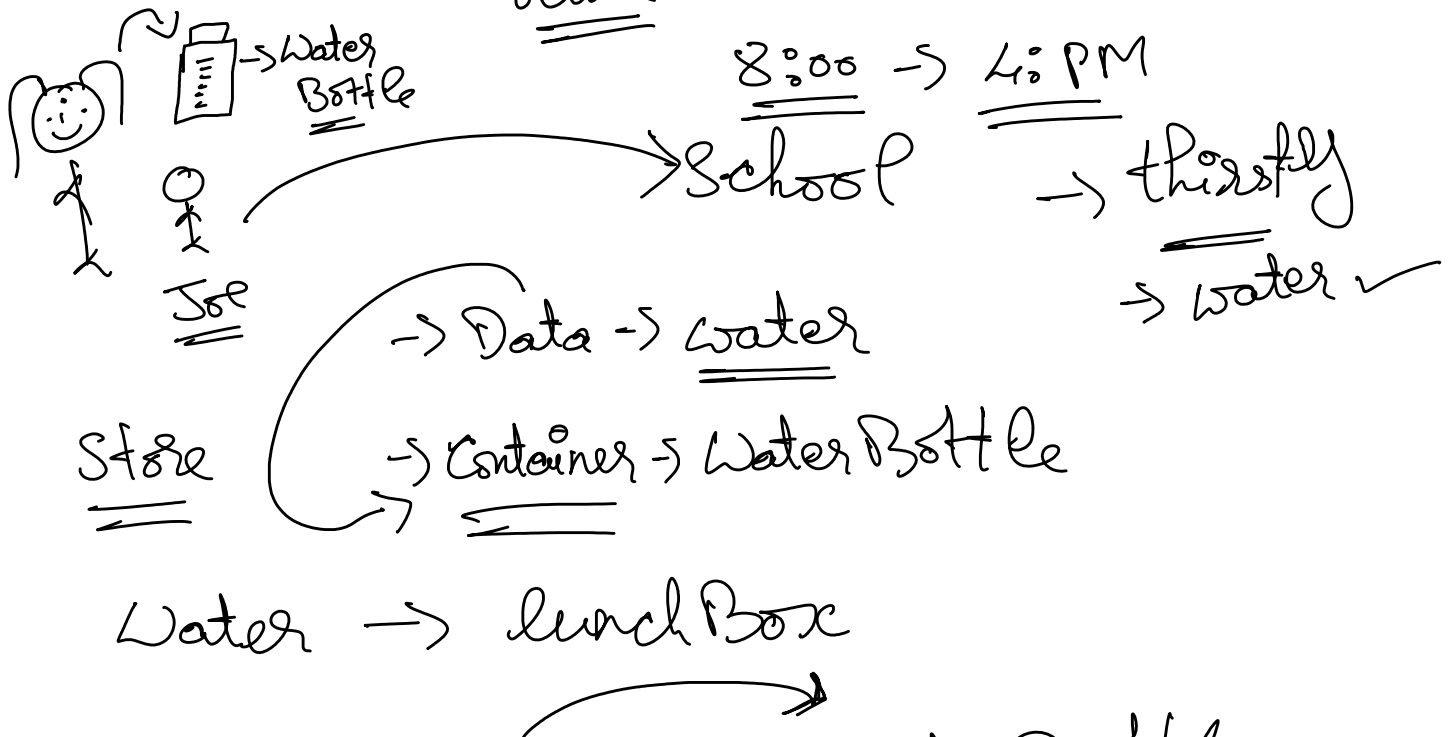 → Water
Bottle
8:00 → 4: PM
School → thirsty
→ water ✓
Joe
→ Data → water
Store → Container → Water Bottle
Water → lunch Box